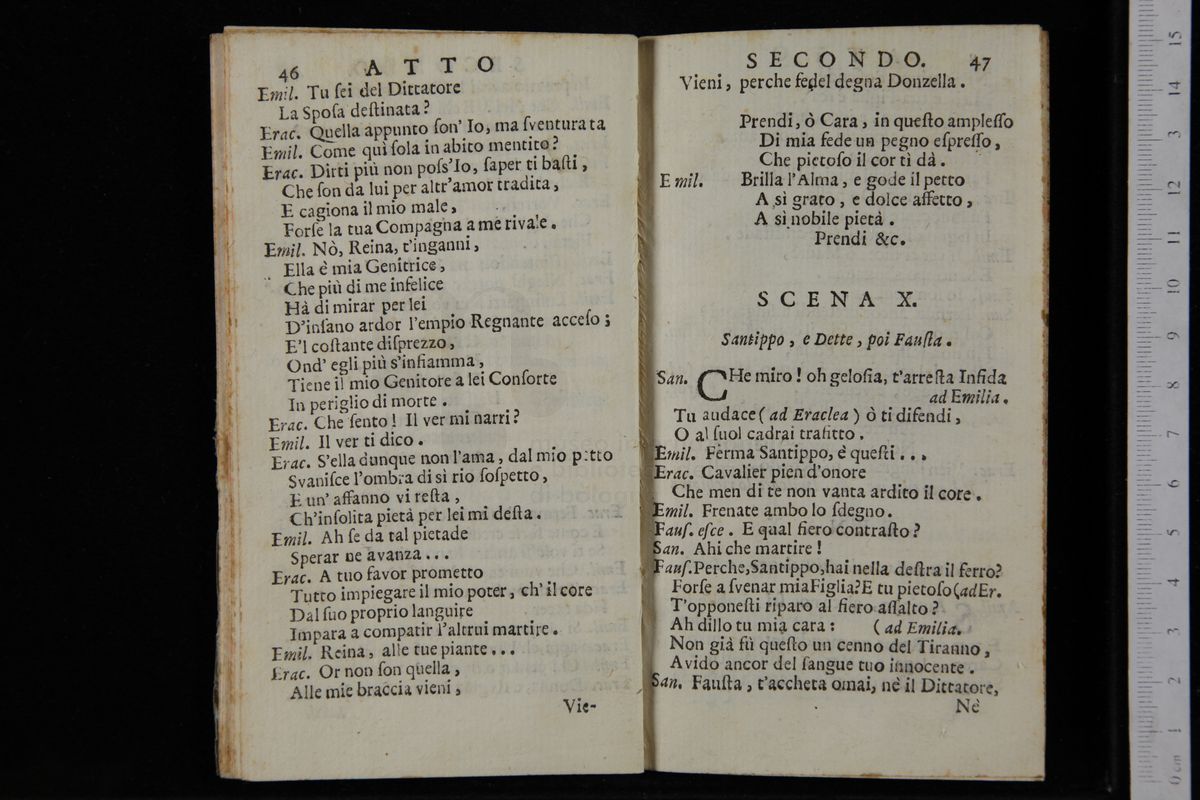 46 ATTO
Emil. Tu ſei del Dittatore
La Spoſa deſtinata?
Erac. Quella appunto ſon' Io, ma ſventurata
Emil. Come quì ſola in abito mentito?
Erac. Dirti più non poſs'Io, ſaper ti baſti,
Che ſon da lui per altr'amor tradita,
E cagiona il mio male,
Forſe la tua Compagna a me rivale.
Emil. Nò, Reina, t'inganni,
Ella è mia Genitrice,
Che più di me infelice
Hà di mirar per lei
D'inſano ardor l'empio Regnante acceſo;
E'l coſtante diſprezzo,
Ond' egli più s'infiamma,
Tiene il mio Genitore a lei Conſorte
In periglio di morte.
Erac. Che ſento! Il ver mi narri?
Emil. Il ver ti dico.
Erac. S'ella dunque non l'ama, dal mio petto
Svaniſce l'ombra di sì rio ſoſpetto,
E un' affanno vi reſta,
Ch'inſolita pietà per lei mi deſta.
Emil. Ah ſe da tal pietade
Sperar ne avanza...
Erac. A tuo favor prometto
Tutto impiegare il mio poter, ch' il core
Dal ſuo proprio languire
Impara a compatir l'altrui martire.
Emil. Reina, alle tue piante...
Erac. Or non ſon quella,
Alle mie braccia vieni,
Vie-
SECONDO. 47
Vieni, perche fedel degna Donzella.
Prendi, ò Cara, in queſto ampleſſo
Di mia fede un pegno eſpreſſo,
Che pietoſo il cor tì dà.
Emil. Brilla l'Alma, e gode il petto
A sì grato, e dolce affetto,
A sì nobile pietà.
Prendi &c.
SCENA X.
Santippo, e Dette, poi Fauſta.
San. CHe miro! oh geloſia, t'arreſta Infida
ad Emilia.
Tu audace (ad Eraclea) ò ti difendi,
O al ſuol cadrai trafitto.
Emil. Ferma Santippo, è queſti...
Erac. Cavalier pien d'onore
Che men di te non vanta ardito il core.
Emil. Frenate ambo lo ſdegno.
Fauſ. eſce. E qual fiero contraſto?
San. Ahi che martire!
Fauſ. Perche, Santippo, hai nella deſtra il ferro?
Forſe a ſvenar mia Figlia? E tu pietoſo (ad Er.
T'opponeſti riparo al fiero aſſalto?
Ah dillo tu mia cara: (ad Emilia.
Non già fù queſto un cenno del Tiranno,
Avido ancor del ſangue tuo innocente.
San. Fauſta, t'accheta omai, nè il Dittatore,
Nè